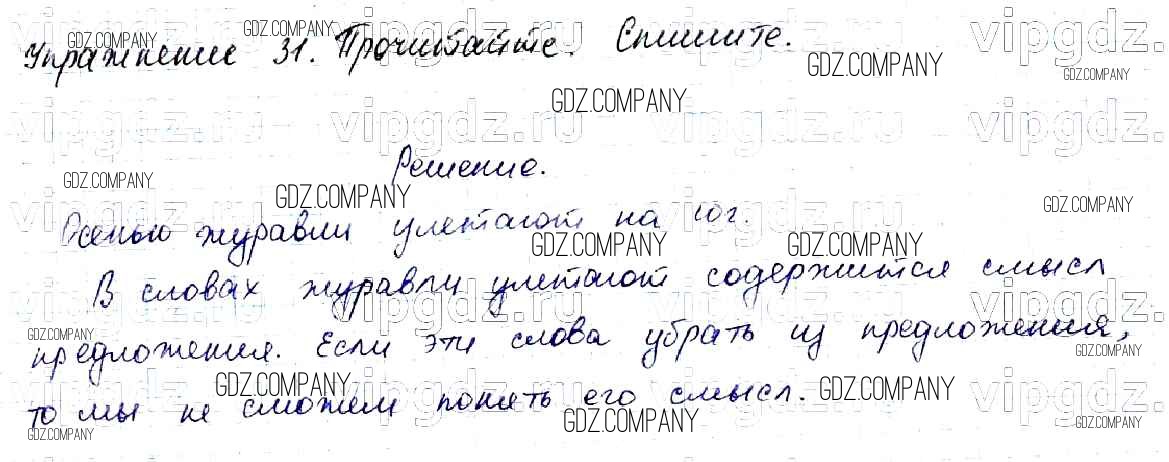 Упражнение 31. Прочитайте. Спишите.
Решение.
Осенью журавли улетают на юг.
В словах журавли улетают содержится смысл
предложения. Если эти слова убрать из предложения,
то мы не сможем понять его смысл.